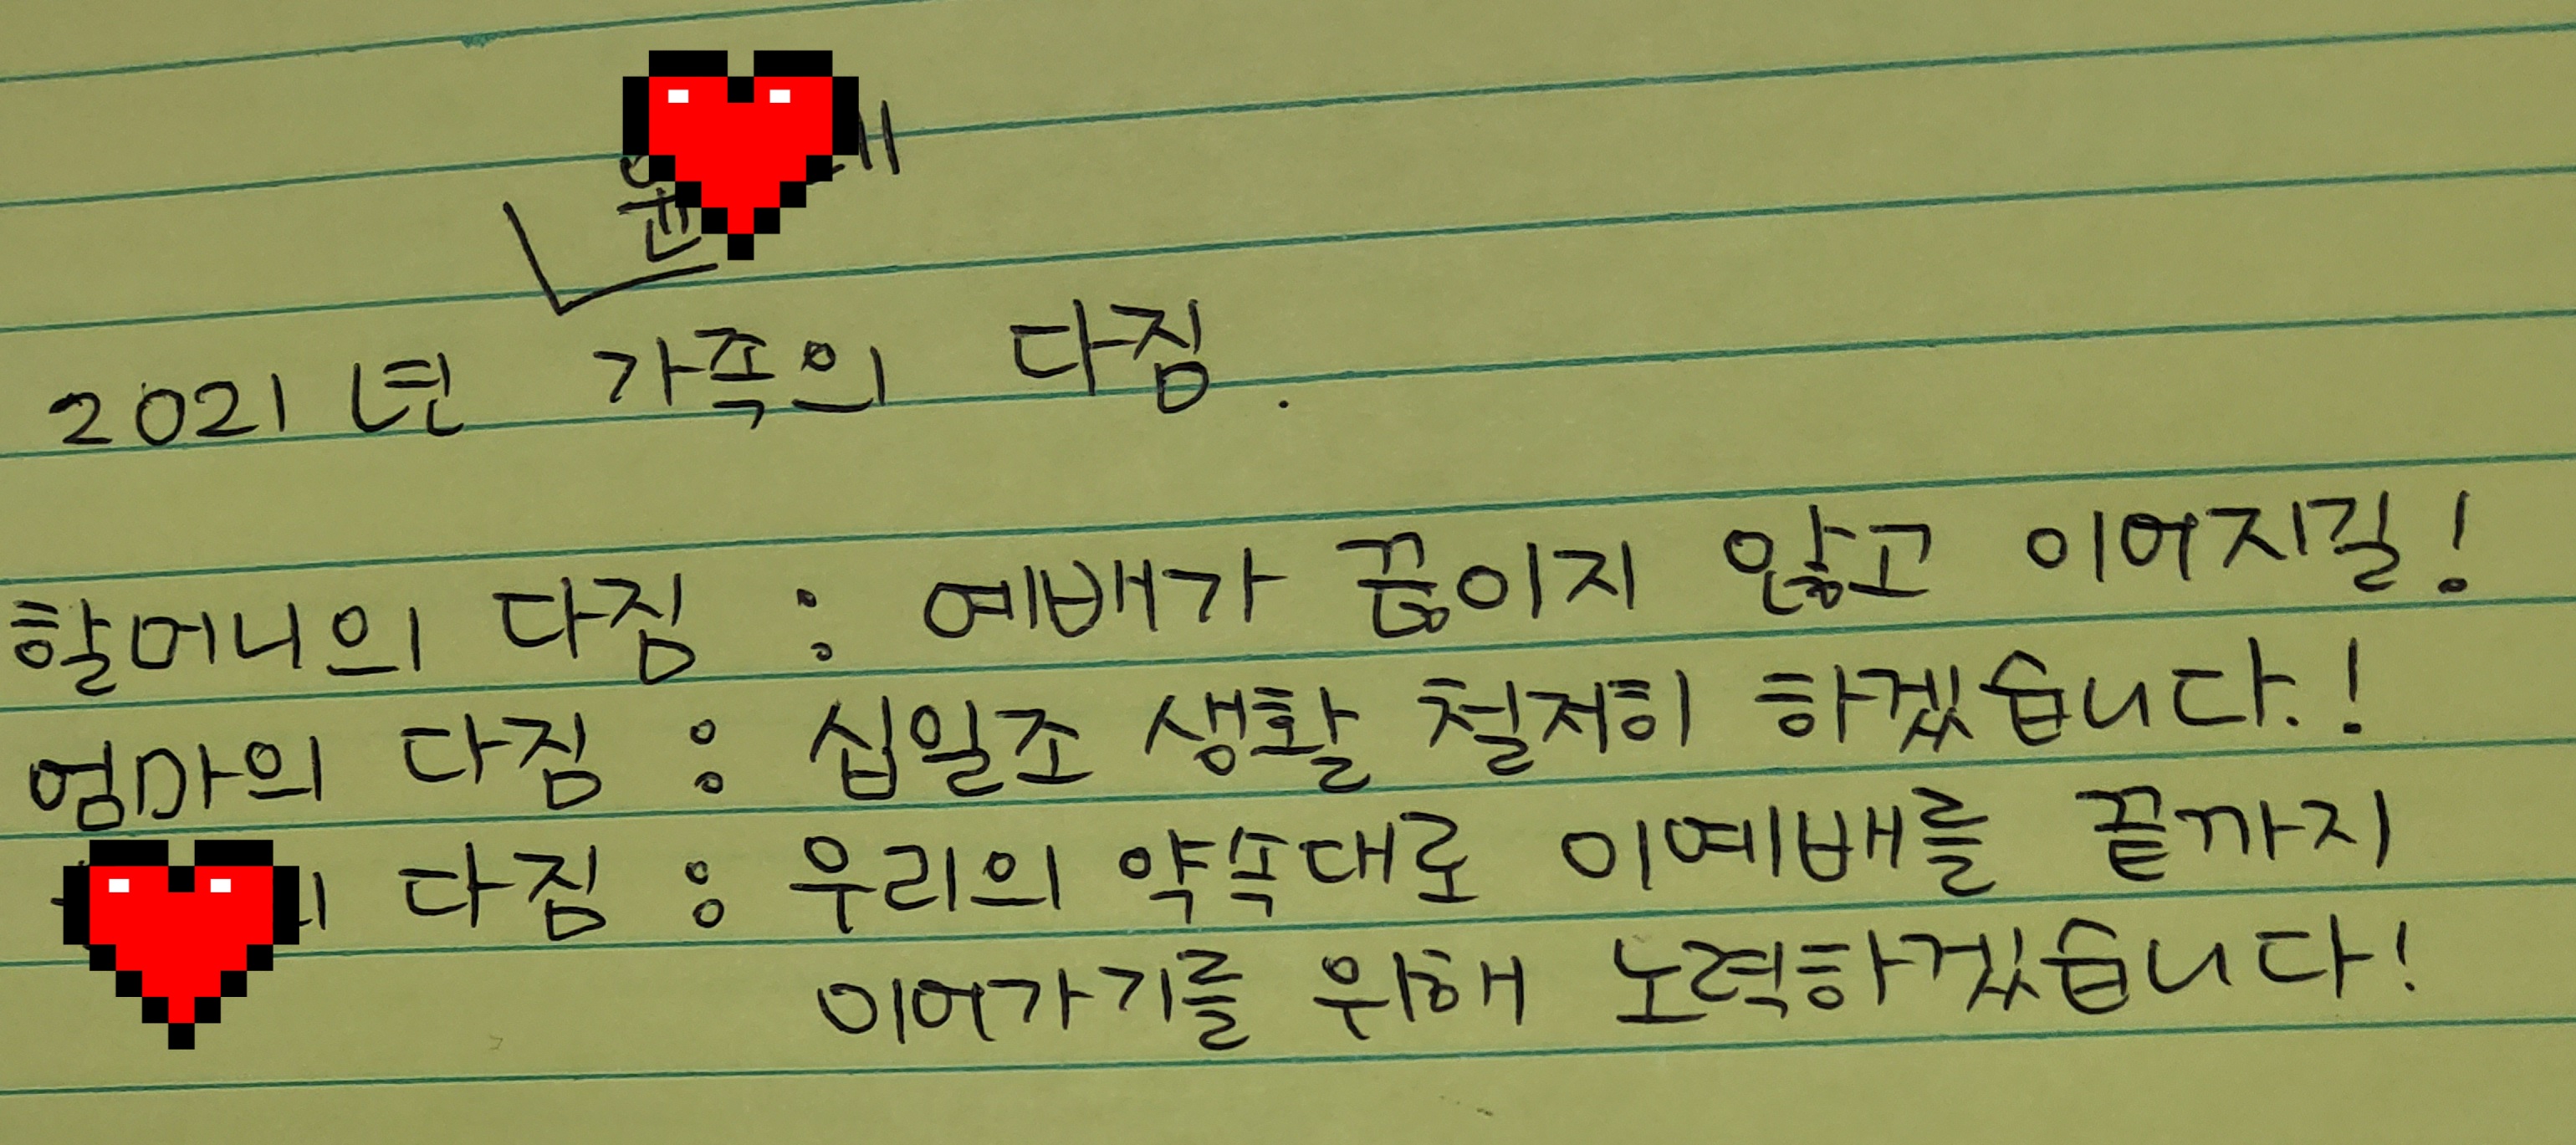 2021년 가족의 다짐.
할머니의 다짐 : 예배가 끊이지 않고 이어지길!
엄마의 다짐 : 십일조 생활 철저히 하겠습니다.!
다짐 : 우리의 약속대로 이예배를 끝까지
이어가기를 위해 노력하겠습니다!